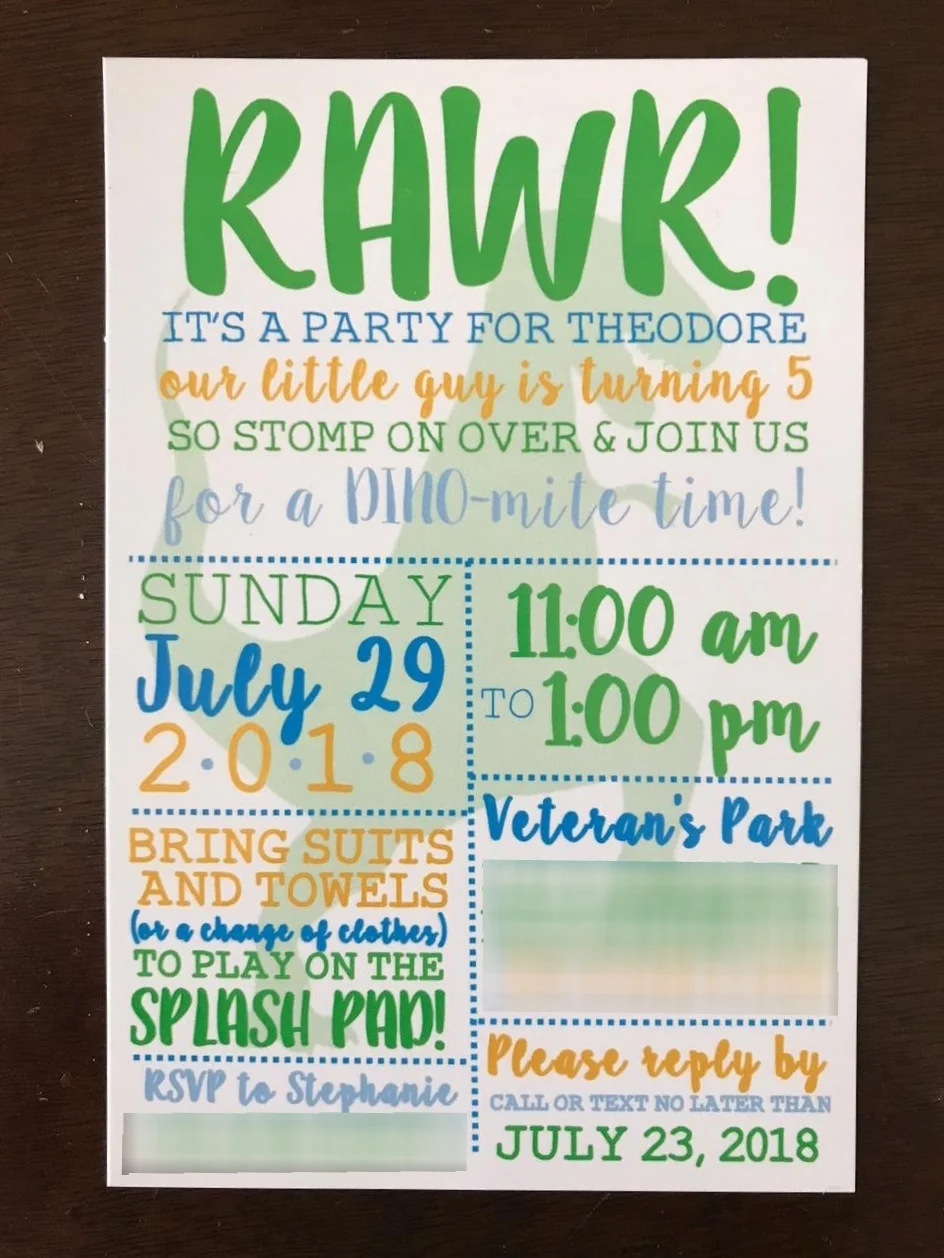 RAWR!
IT'S A PARTY FOR THEODORE
our little guy is turning 5
SO STOMP ON OVER & JOIN US
for a DINO-mite time!
SUNDAY
July 29
2·0·1·8
11:00 am
TO 1:00 pm
BRING SUITS
AND TOWELS
(or a change of clothes)
TO PLAY ON THE
SPLASH PAD!
Veteran's Park
RSVP to Stephanie
Please reply by
CALL OR TEXT NO LATER THAN
JULY 23, 2018